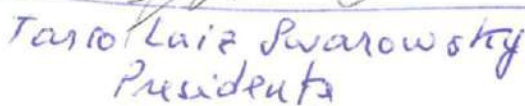 Tarso Luiz Swarowsky
Presidente